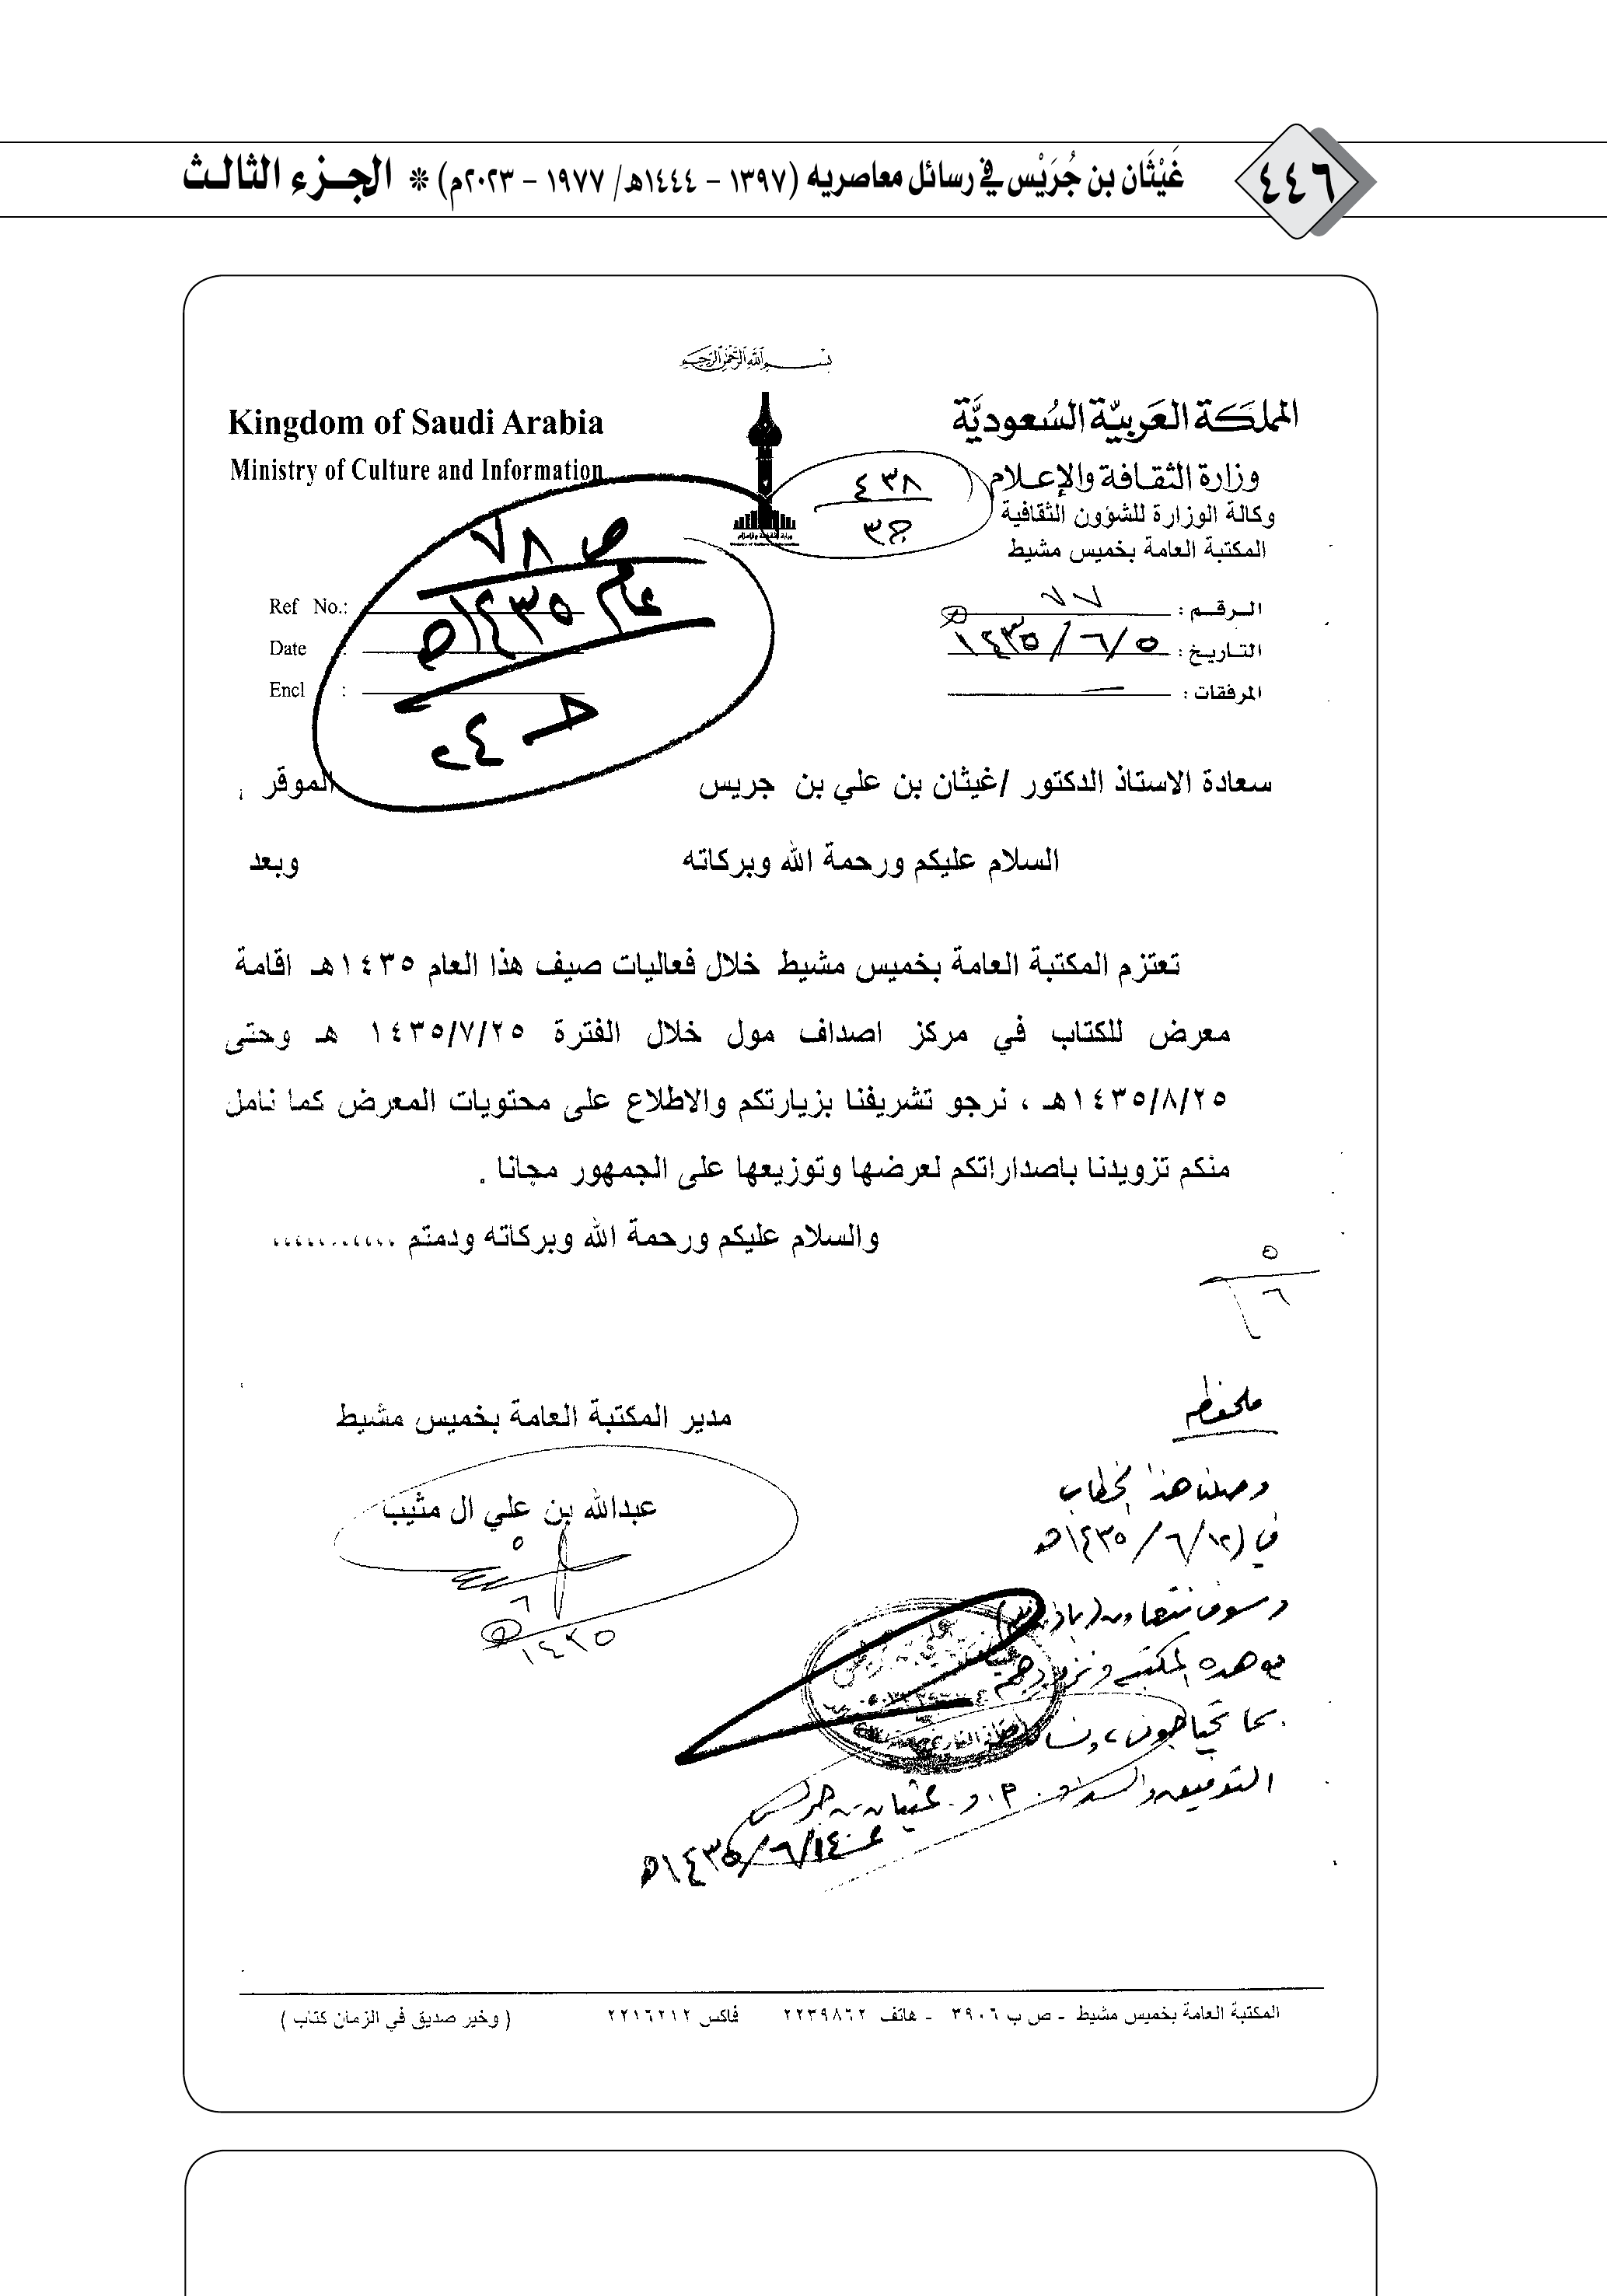 ٤٤٦
غَيْثَان بن جُرَيْس في رسائل معاصريه (١٣٩٧ – ١٤٤٤هـ/ ١٩٧٧ – ٢٠٢٣م) * الجـزء الثالـث
بسم الله الرحمن الرحيم
المملكة العربية السعودية
وزارة الثقافة والإعلام
وكالة الوزارة للشؤون الثقافية
المكتبة العامة بخميس مشيط
Kingdom of Saudi Arabia
Ministry of Culture and Information
٤٣٨
ج٣
ص ٧٨
عام ١٤٣٥هـ
الرقم : ٧٧
التاريخ : ٥/ ٦/ ١٤٣٥
المرفقات : —
Ref No.:
Date :
Encl :
سعادة الاستاذ الدكتور /غيثان بن علي بن جريس الموقر ،
السلام عليكم ورحمة الله وبركاته وبعد
تعتزم المكتبة العامة بخميس مشيط خلال فعاليات صيف هذا العام ١٤٣٥هـ اقامة
معرض للكتاب في مركز اصداف مول خلال الفترة ١٤٣٥/٧/٢٥ هـ وحتى
١٤٣٥/٨/٢٥هـ ، نرجو تشريفنا بزيارتكم والاطلاع على محتويات المعرض كما نامل
منكم تزويدنا باصداراتكم لعرضها وتوزيعها على الجمهور مجانا .
والسلام عليكم ورحمة الله وبركاته ودمتم ،،،،،،،،،،،،
٥
٦
مدير المكتبة العامة بخميس مشيط
عبدالله بن علي ال مثيب
٥
٦
١٤٣٥
ملحوظة
وصلنا هذا الخطاب
في (١٢/ ٦/ ١٤٣٥هـ
وسوف نتعاون (باذن
مع هذه المكتبة ونزودهم
بما يحتاجون،
التوفيق والسداد. أ.د. غيثان بن جريس
١٤/ ٦/ ١٤٣٥هـ
المكتبة العامة بخميس مشيط - ص ب ٣٩٠٦ - هاتف ٢٢٣٩٨٦٢ فاكس ٢٢١٦٢١٢ ( وخير صديق في الزمان كتاب )